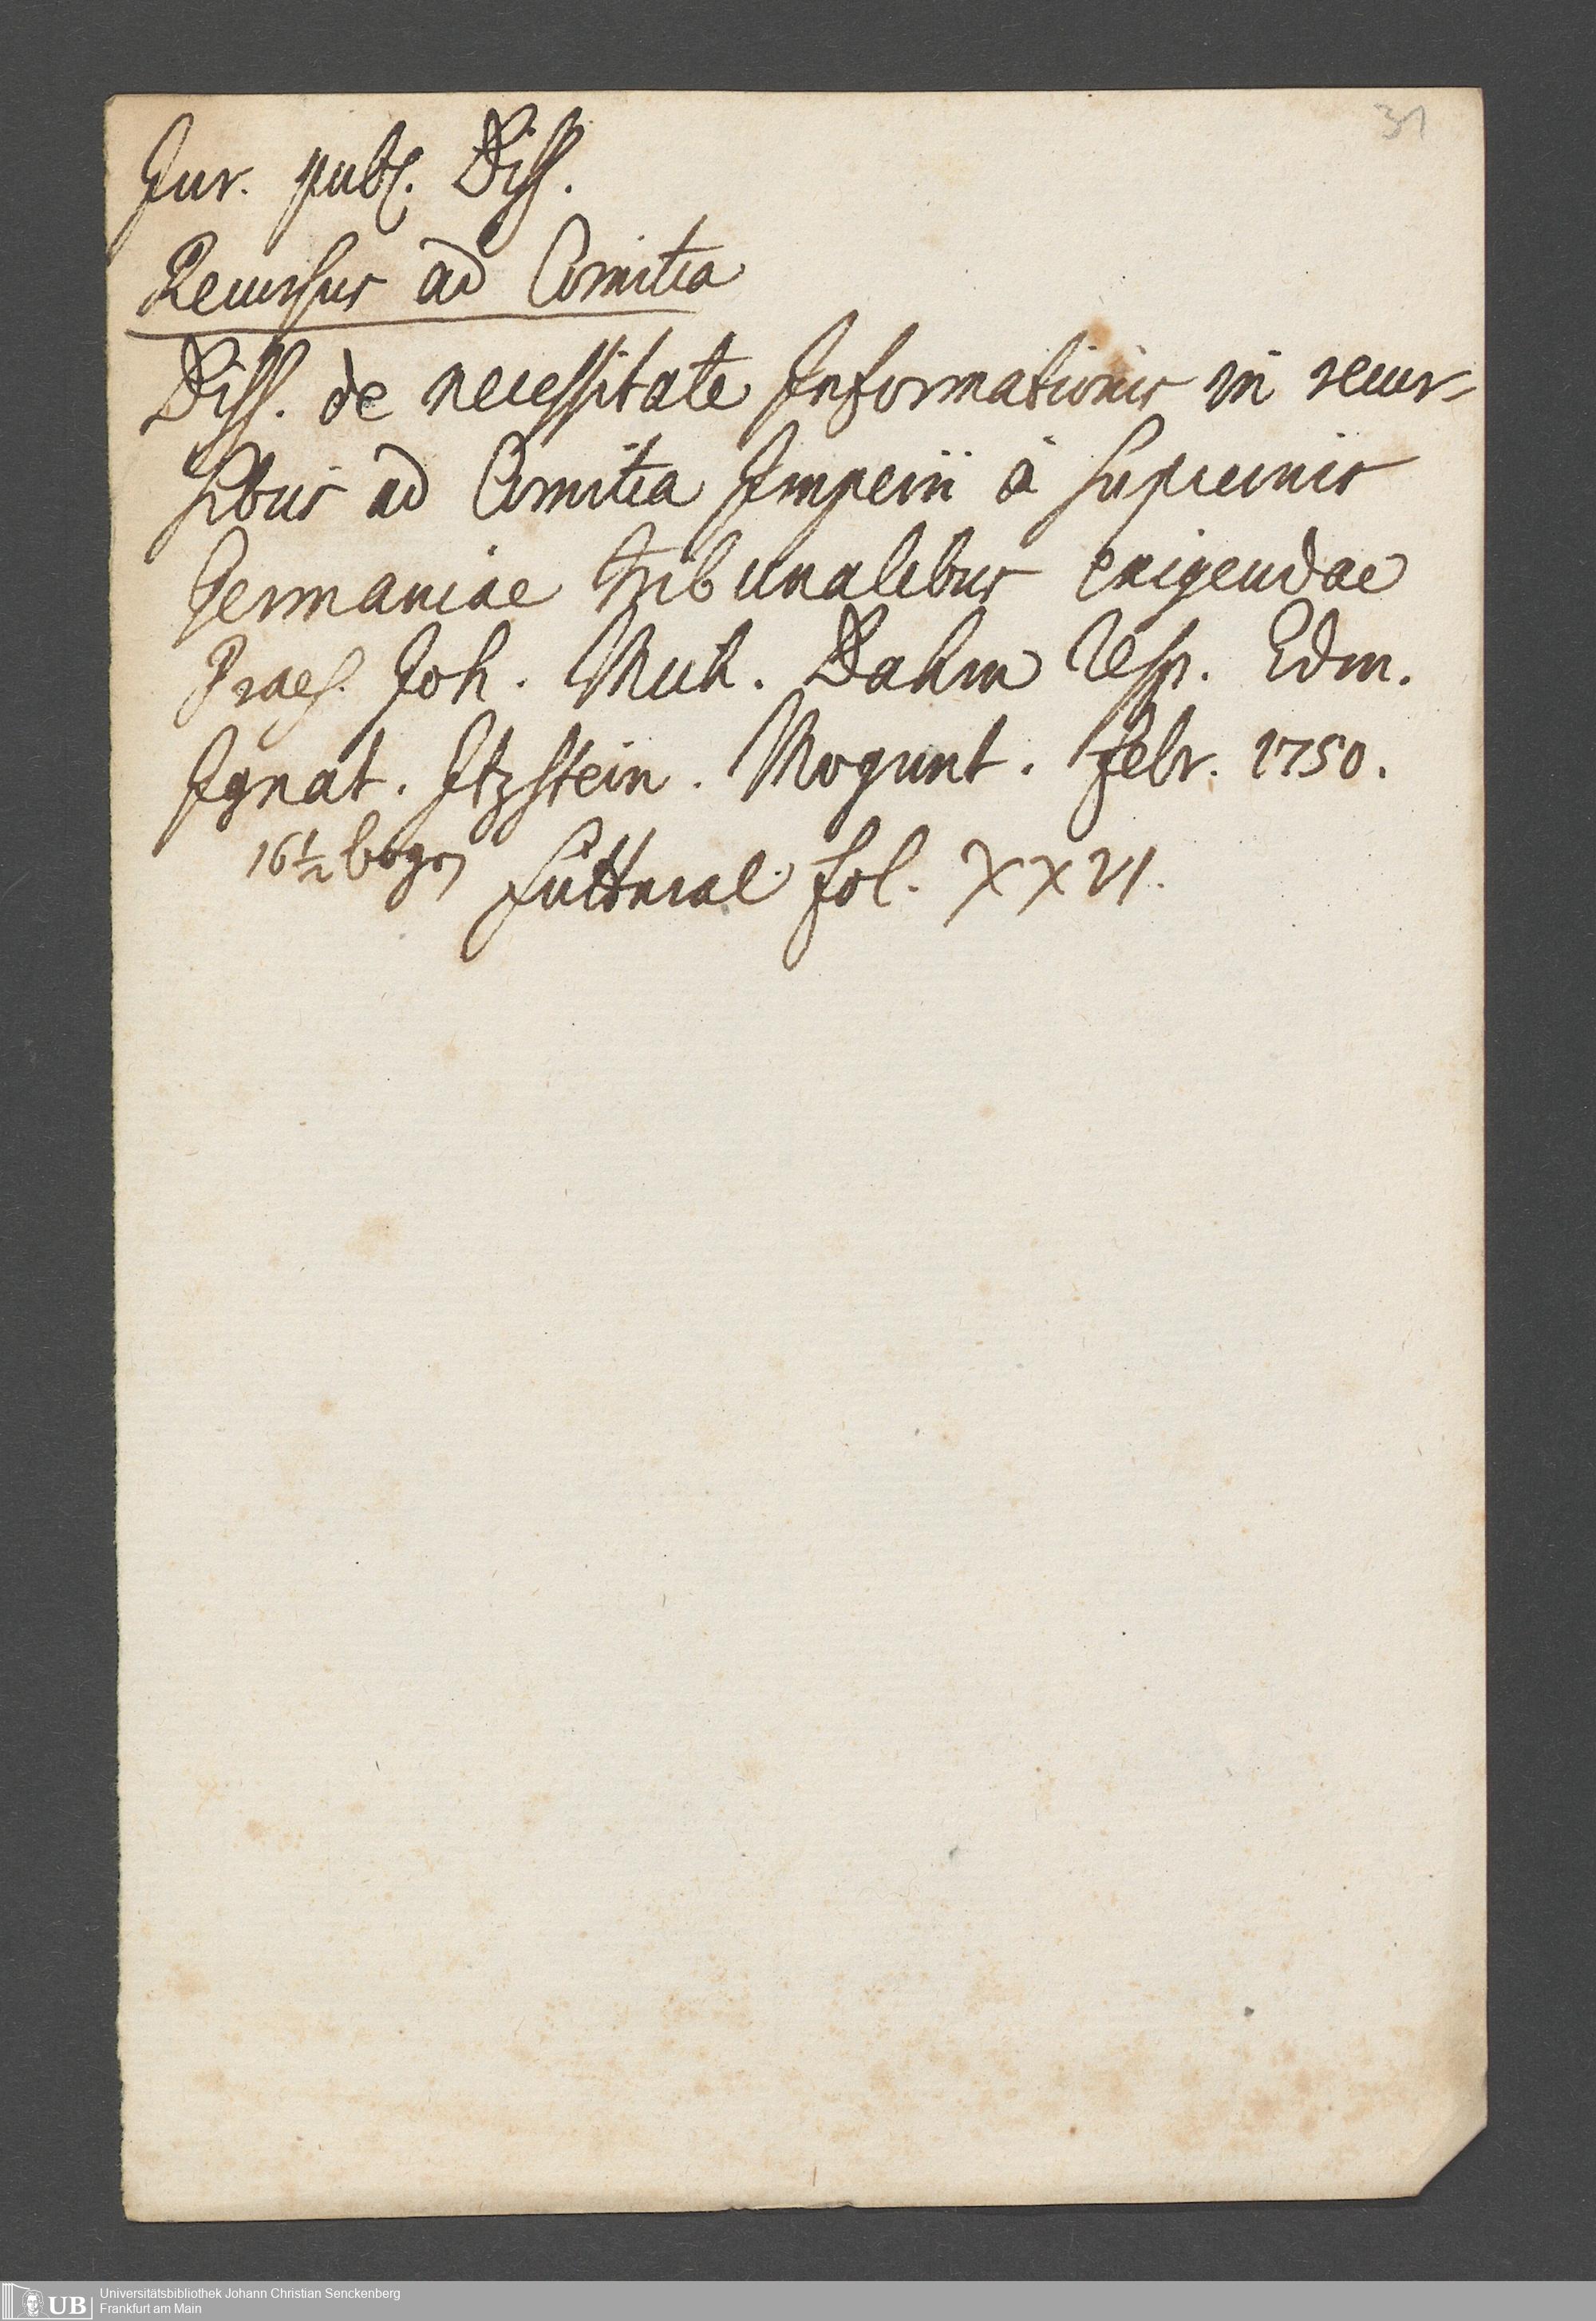 31
Jur. publ. Diss.
Recursus ad Comitia
Diss. de necessitate Informationis in recur-
sibus ad Comitia Imperii à supremis
Germaniae tribunalibus exigendae
Praes. Joh. Mich. Dahm Resp. Edm.
Ignat. Itzstein. Mogunt. Febr. 1750.
16½ bogen futteral fol. XXVI.
UB Universitätsbibliothek Johann Christian Senckenberg
Frankfurt am Main